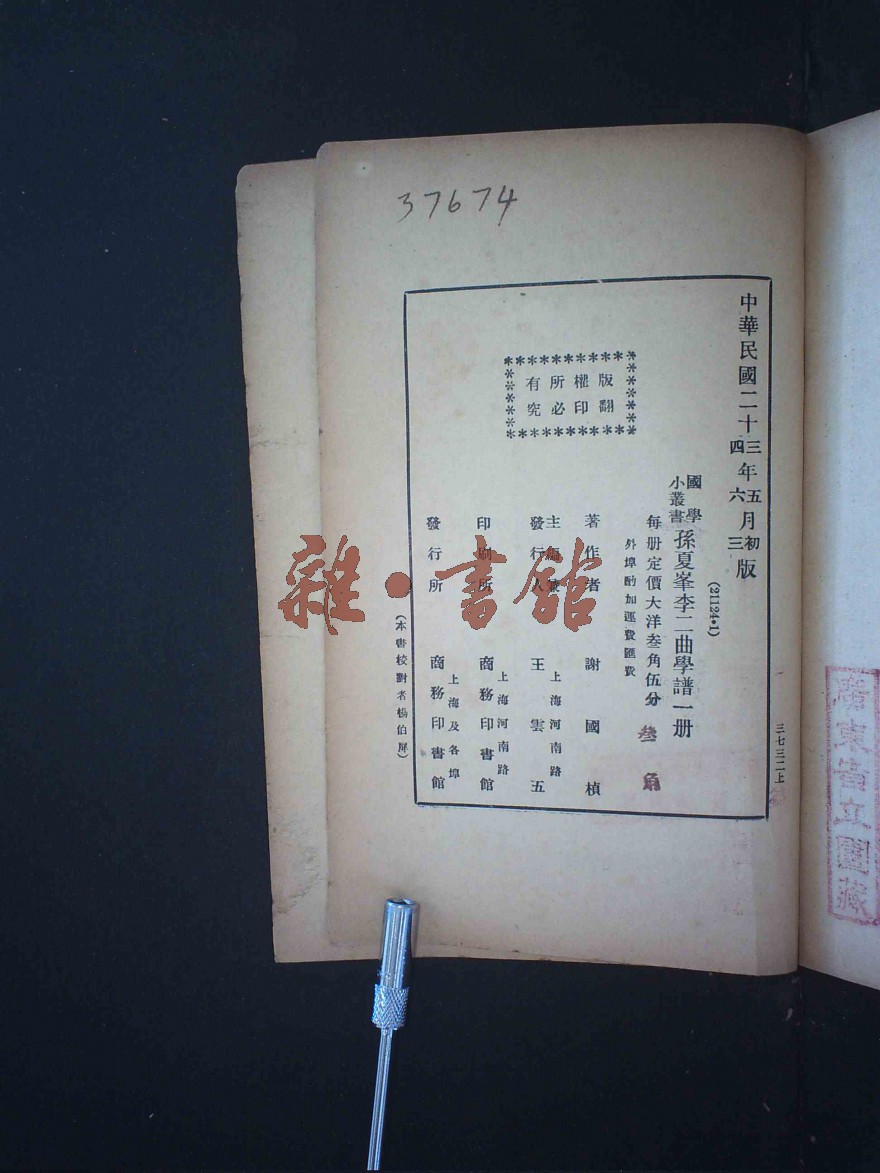 37674
中華民國二十三年五月初版
四六三
國學小叢書
孫夏峯李二曲學譜一册
(21124·1)
每册定價大洋叁角伍分
叁角
外埠酌加運費匯費
著作者 謝國楨
主編兼發行人 王雲五
上海河南路
印刷所 商務印書館
上海河南路
發行所 商務印書館
上海及各埠
版權所有
翻印必究
(本書校對者楊伯屏)
三七三二上
雜·書館
廣東省立圖藏